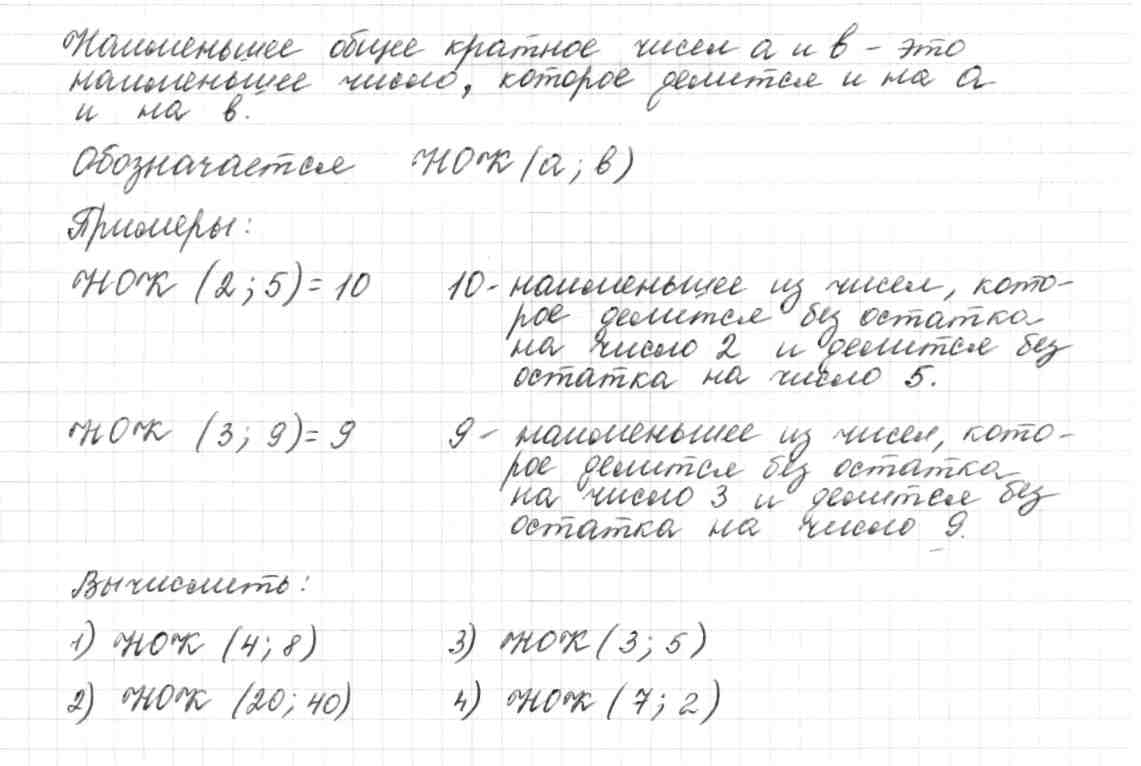 Наименьшее общее кратное чисел a и b – это
наименьшее число, которое делится и на a
и на b.
Обозначается НОК (a; b)
Примеры:
НОК (2; 5) = 10 10 - наименьшее из чисел, кото-
рое делится без остатка
на число 2 и делится без
остатка на число 5.
НОК (3; 9) = 9 9 - наименьшее из чисел, кото-
рое делится без остатка
на число 3 и делится без
остатка на число 9.
Вычислить:
1) НОК (4; 8) 3) НОК (3; 5)
2) НОК (20; 40) 4) НОК (7; 2)